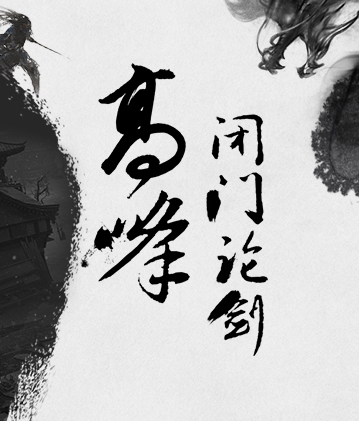 高峰
闭门论剑